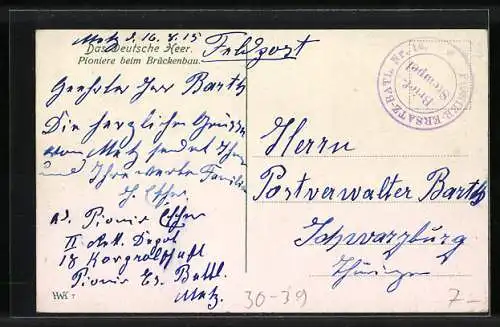 Metz d. 16.7.15
Das Deutsche Heer.
Pioniere beim Brückenbau.
Feldpost
Geehrter Herr Bartz
Die herzlichen Grüsse
von Metz sendet Ihnen
und Ihre werte Familie
Ad. Pionier
II Rek. Depot
18
Pionier Ers. Battl.
Metz.
HWK 7
PIONIER-ERSATZ-BATL. Nr. 16. *
Brief-
Stempel
Herrn
Postverwalter Bartz
Schwarzburg
Thüringen
30-39
7-